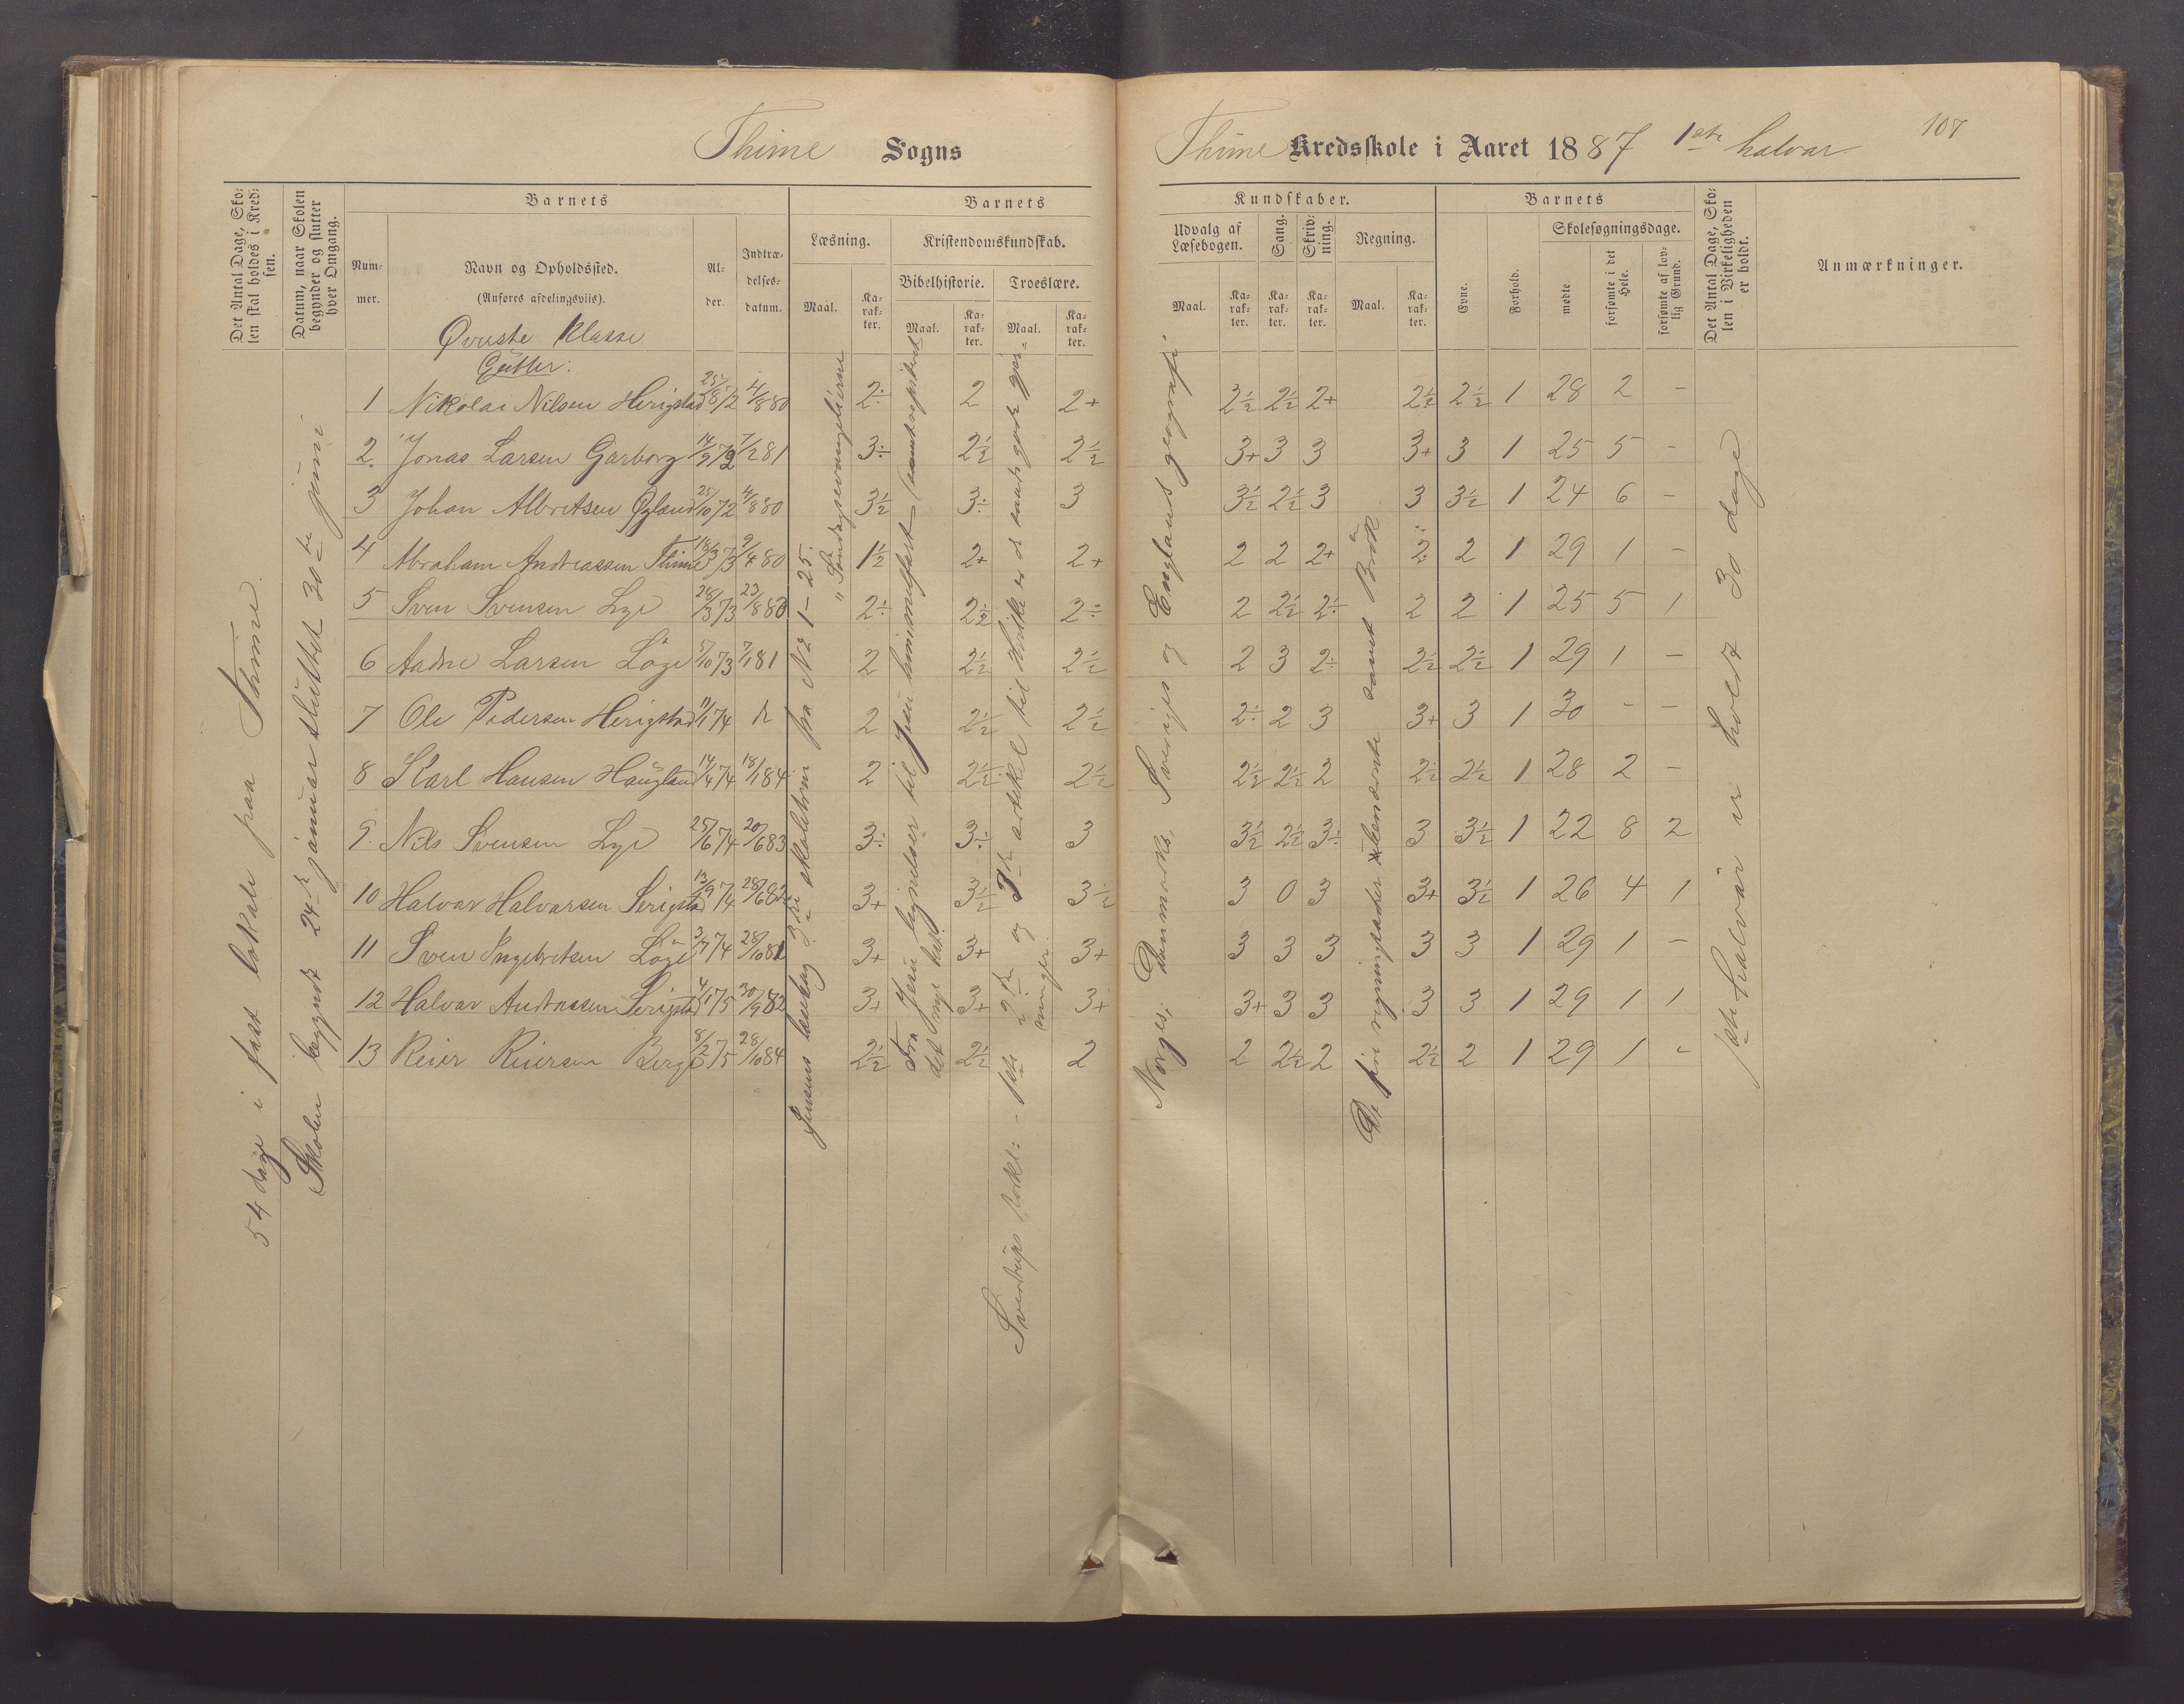 Thime Sogns
Thime Kredsskole i Aaret 1887 1ste halvar
107
Det Antal Dage, Sko-
len skal holdes i Kred-
sen.
Datum, naar Skolen
begynder og slutter
hver Omgang.
Barnets
Num-
mer.
Navn og Opholdssted.
(Anføres afdelingsviis).
Al-
der.
Indtræ-
delses-
datum.
Barnets
Læsning.
Maal.
Ka-
rak-
ter.
Kristendomskundskab.
Bibelhistorie.
Maal.
Ka-
rak-
ter.
Troeslære.
Maal.
Ka-
rak-
ter.
Kundskaber.
Udvalg af
Læsebogen.
Maal.
Ka-
rak-
ter.
Sang.
Ka-
rak-
ter.
Skriv-
ning.
Ka-
rak-
ter.
Regning.
Maal.
Ka-
rak-
ter.
Barnets
Evne.
Forhold.
Skolesøgningsdage.
mødte.
forsømte i det
Hele.
forsømte af lov-
lig Grund.
Det Antal Dage, Sko-
len i Virkeligheden
er holdt.
Anmærkninger.
Øverste Klasse
Gutter:
1 Nikolai Nilsen Herigstad 25/8 72 4/8 80 2÷ 2 2+ 2½ 2½ 2+ 2½ 2½ 1 28 2 –
2. Jonas Larsen Garborg 14/9 72 7/2 81 3÷ 2½ 2½ 3+ 3 3 3+ 3 1 25 5 –
3 Johan Albretsen Øgland 25/10 72 4/8 80 3½ 3÷ 3 3½ 2½ 3 3 3½ 1 24 6 –
4 Abraham Andreassen Thime 18/3 73 9/4 80 1½ 2+ 2+ 2 2 2+ 2 2 1 29 1 –
5 Sven Svensen Lye 28/3 73 23/8 80 2÷ 2½ 2÷ 2 2½ 2÷ 2 2 1 25 5 1
6 Aadne Larsen Löge 5/10 73 7/1 81 2 2½ 2½ 2 3 2÷ 2½ 2½ 1 29 1 –
7 Ole Pedersen Herigstad 11/1 74 2 2½ 2½ 2÷ 2 3 3+ 3 1 30 – –
8 Karl Hansen Haugland 14/4 74 18/1 84 2 2½ 2½ 2½ 2½ 2 2½ 2½ 1 28 2 –
9. Nils Svensen Lye 25/6 74 20/6 83 3÷ 3÷ 3 3½ 2½ 3÷ 3 3½ 1 22 8 2
10 Halvar Halvarsen Serigstad 13/9 74 28/6 82 3+ 3½ 3½ 3 0 3 3+ 3½ 1 26 4 1
11 Sven Ingebretsen Löge 3/7 74 28/10 81 3+ 3+ 3+ 3 3 3 3 3 1 29 1 –
12 Halvar Andreasen Serigstad 4/1 75 30/9 82 3+ 3+ 3+ 3+ 3 3 3 3 1 29 1 1
13 Reier Reiersen Berge 8/2 75 28/10 84 2½ 2½ 2 2 2½ 2 2½ 2 1 29 1 –
54 dage i fast lokale paa Thime.
Skolen begyndt 24de januar sluttet 30te juni
Jensens læsebog 3die skoletrin fra No 1–25.
" Söndagsevangelierne
Fra Jesu lignelser til Jesu himmelfart (samt repeteret
det nye
Sverdrups forkl: – 1ste 2den og 3de artikel til
Norges, Danmarks, Sveriges og Englands geografi
De fire regningsarter samt Brök
1ste halvår er holdt 30 dage